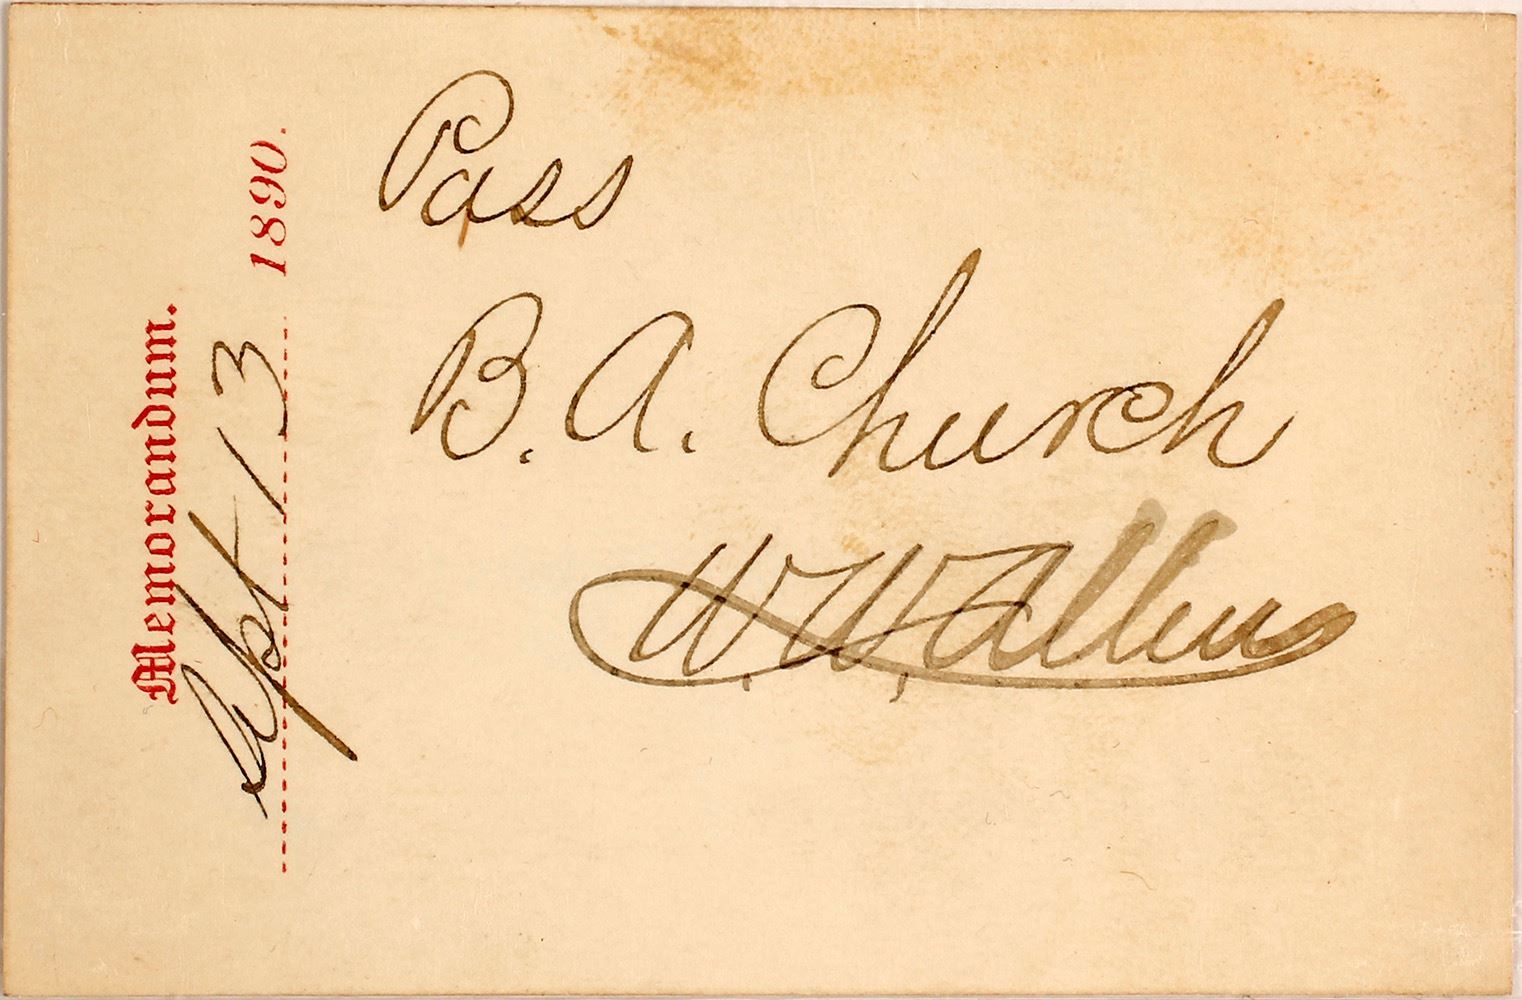 Memorandum.
Sept 13 1890.
Pass
B. A. Church
W. W. Allen